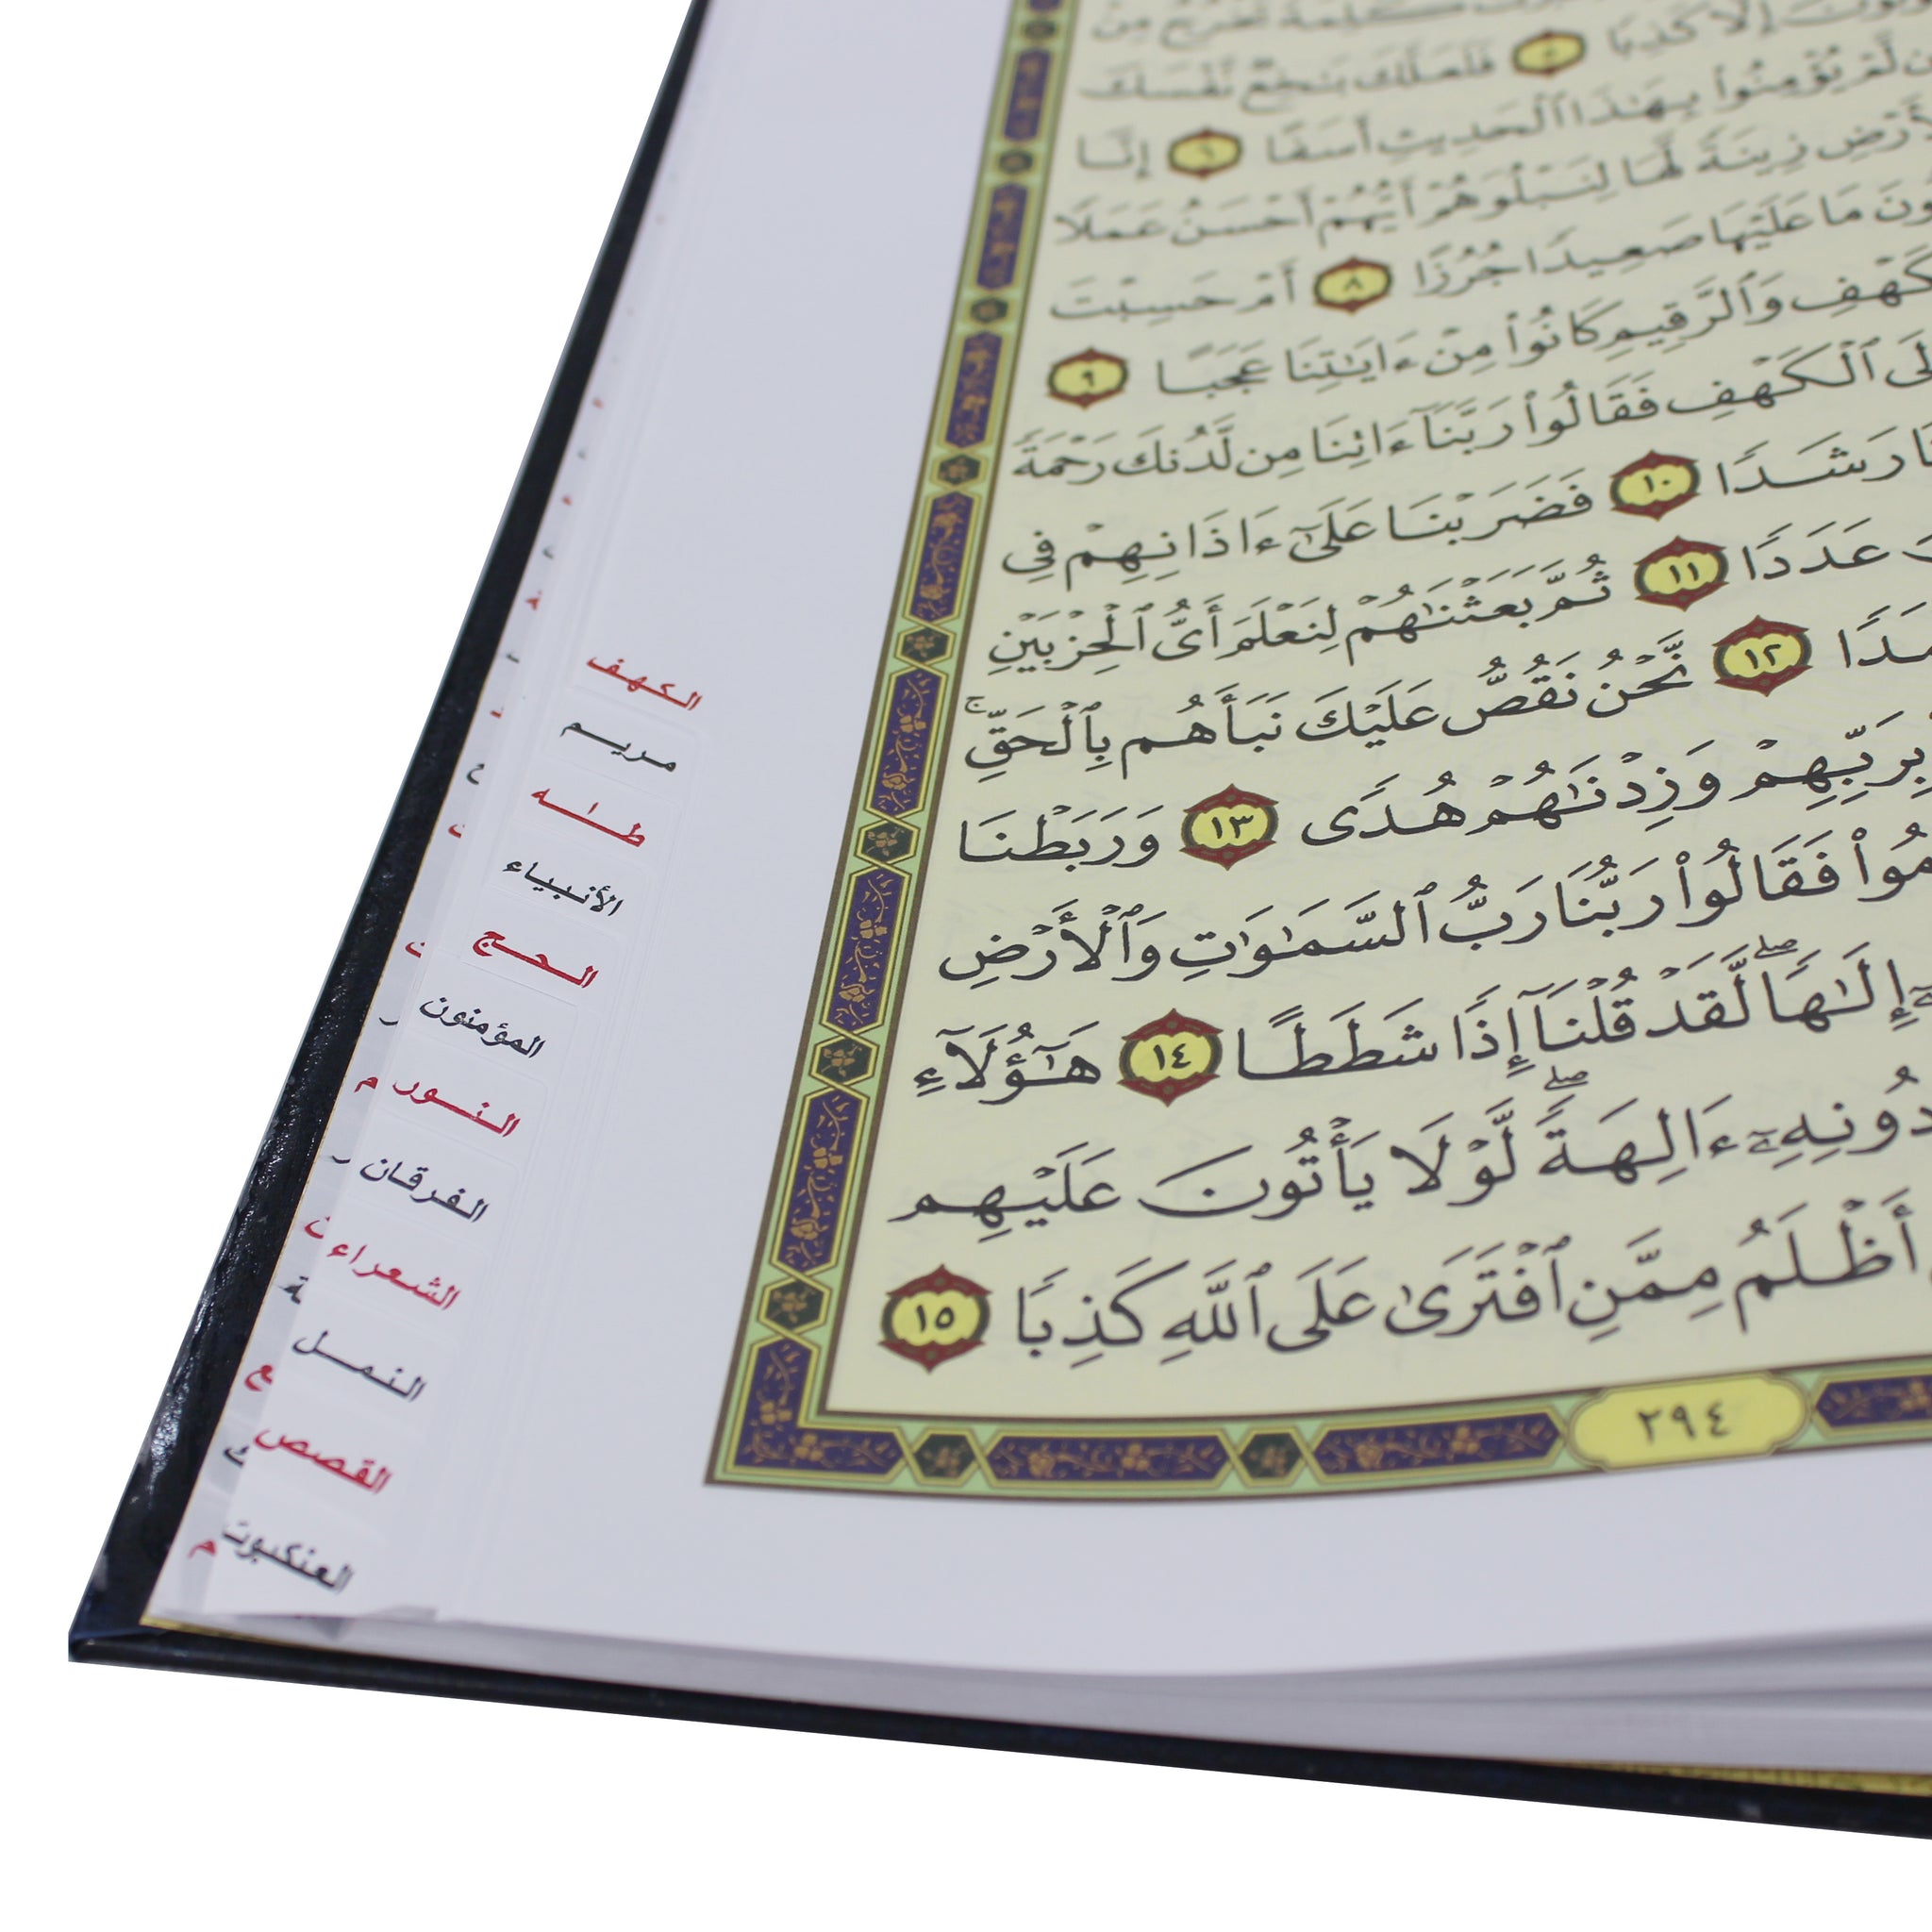 إِلَّا كَذِبًا ٥ فَلَعَلَّكَ بَٰخِعٌ نَّفْسَكَ
لَّمْ يُؤْمِنُوا۟ بِهَٰذَا ٱلْحَدِيثِ أَسَفًا ٦ إِنَّا
زِينَةً لَّهَا لِنَبْلُوَهُمْ أَيُّهُمْ أَحْسَنُ عَمَلًا
مَا عَلَيْهَا صَعِيدًا جُرُزًا ٨ أَمْ حَسِبْتَ
وَٱلرَّقِيمِ كَانُوا۟ مِنْ ءَايَٰتِنَا عَجَبًا ٩
ٱلْكَهْفِ فَقَالُوا۟ رَبَّنَآ ءَاتِنَا مِن لَّدُنكَ رَحْمَةً
رَشَدًا ١٠ فَضَرَبْنَا عَلَىٰٓ ءَاذَانِهِمْ فِى
عَدَدًا ١١ ثُمَّ بَعَثْنَٰهُمْ لِنَعْلَمَ أَىُّ ٱلْحِزْبَيْنِ
١٢ نَّحْنُ نَقُصُّ عَلَيْكَ نَبَأَهُم بِٱلْحَقِّ ۚ
بِرَبِّهِمْ وَزِدْنَٰهُمْ هُدًى ١٣ وَرَبَطْنَا
فَقَالُوا۟ رَبُّنَا رَبُّ ٱلسَّمَٰوَٰتِ وَٱلْأَرْضِ
إِلَٰهًا ۖ لَّقَدْ قُلْنَآ إِذًا شَطَطًا ١٤ هَٰٓؤُلَآءِ
دُونِهِۦٓ ءَالِهَةً ۖ لَّوْلَا يَأْتُونَ عَلَيْهِم
أَظْلَمُ مِمَّنِ ٱفْتَرَىٰ عَلَى ٱللَّهِ كَذِبًا ١٥
٢٩٤
الكهف
مريم
طه
الأنبياء
الحج
المؤمنون
النور
الفرقان
الشعراء
النمل
القصص
العنكبوت